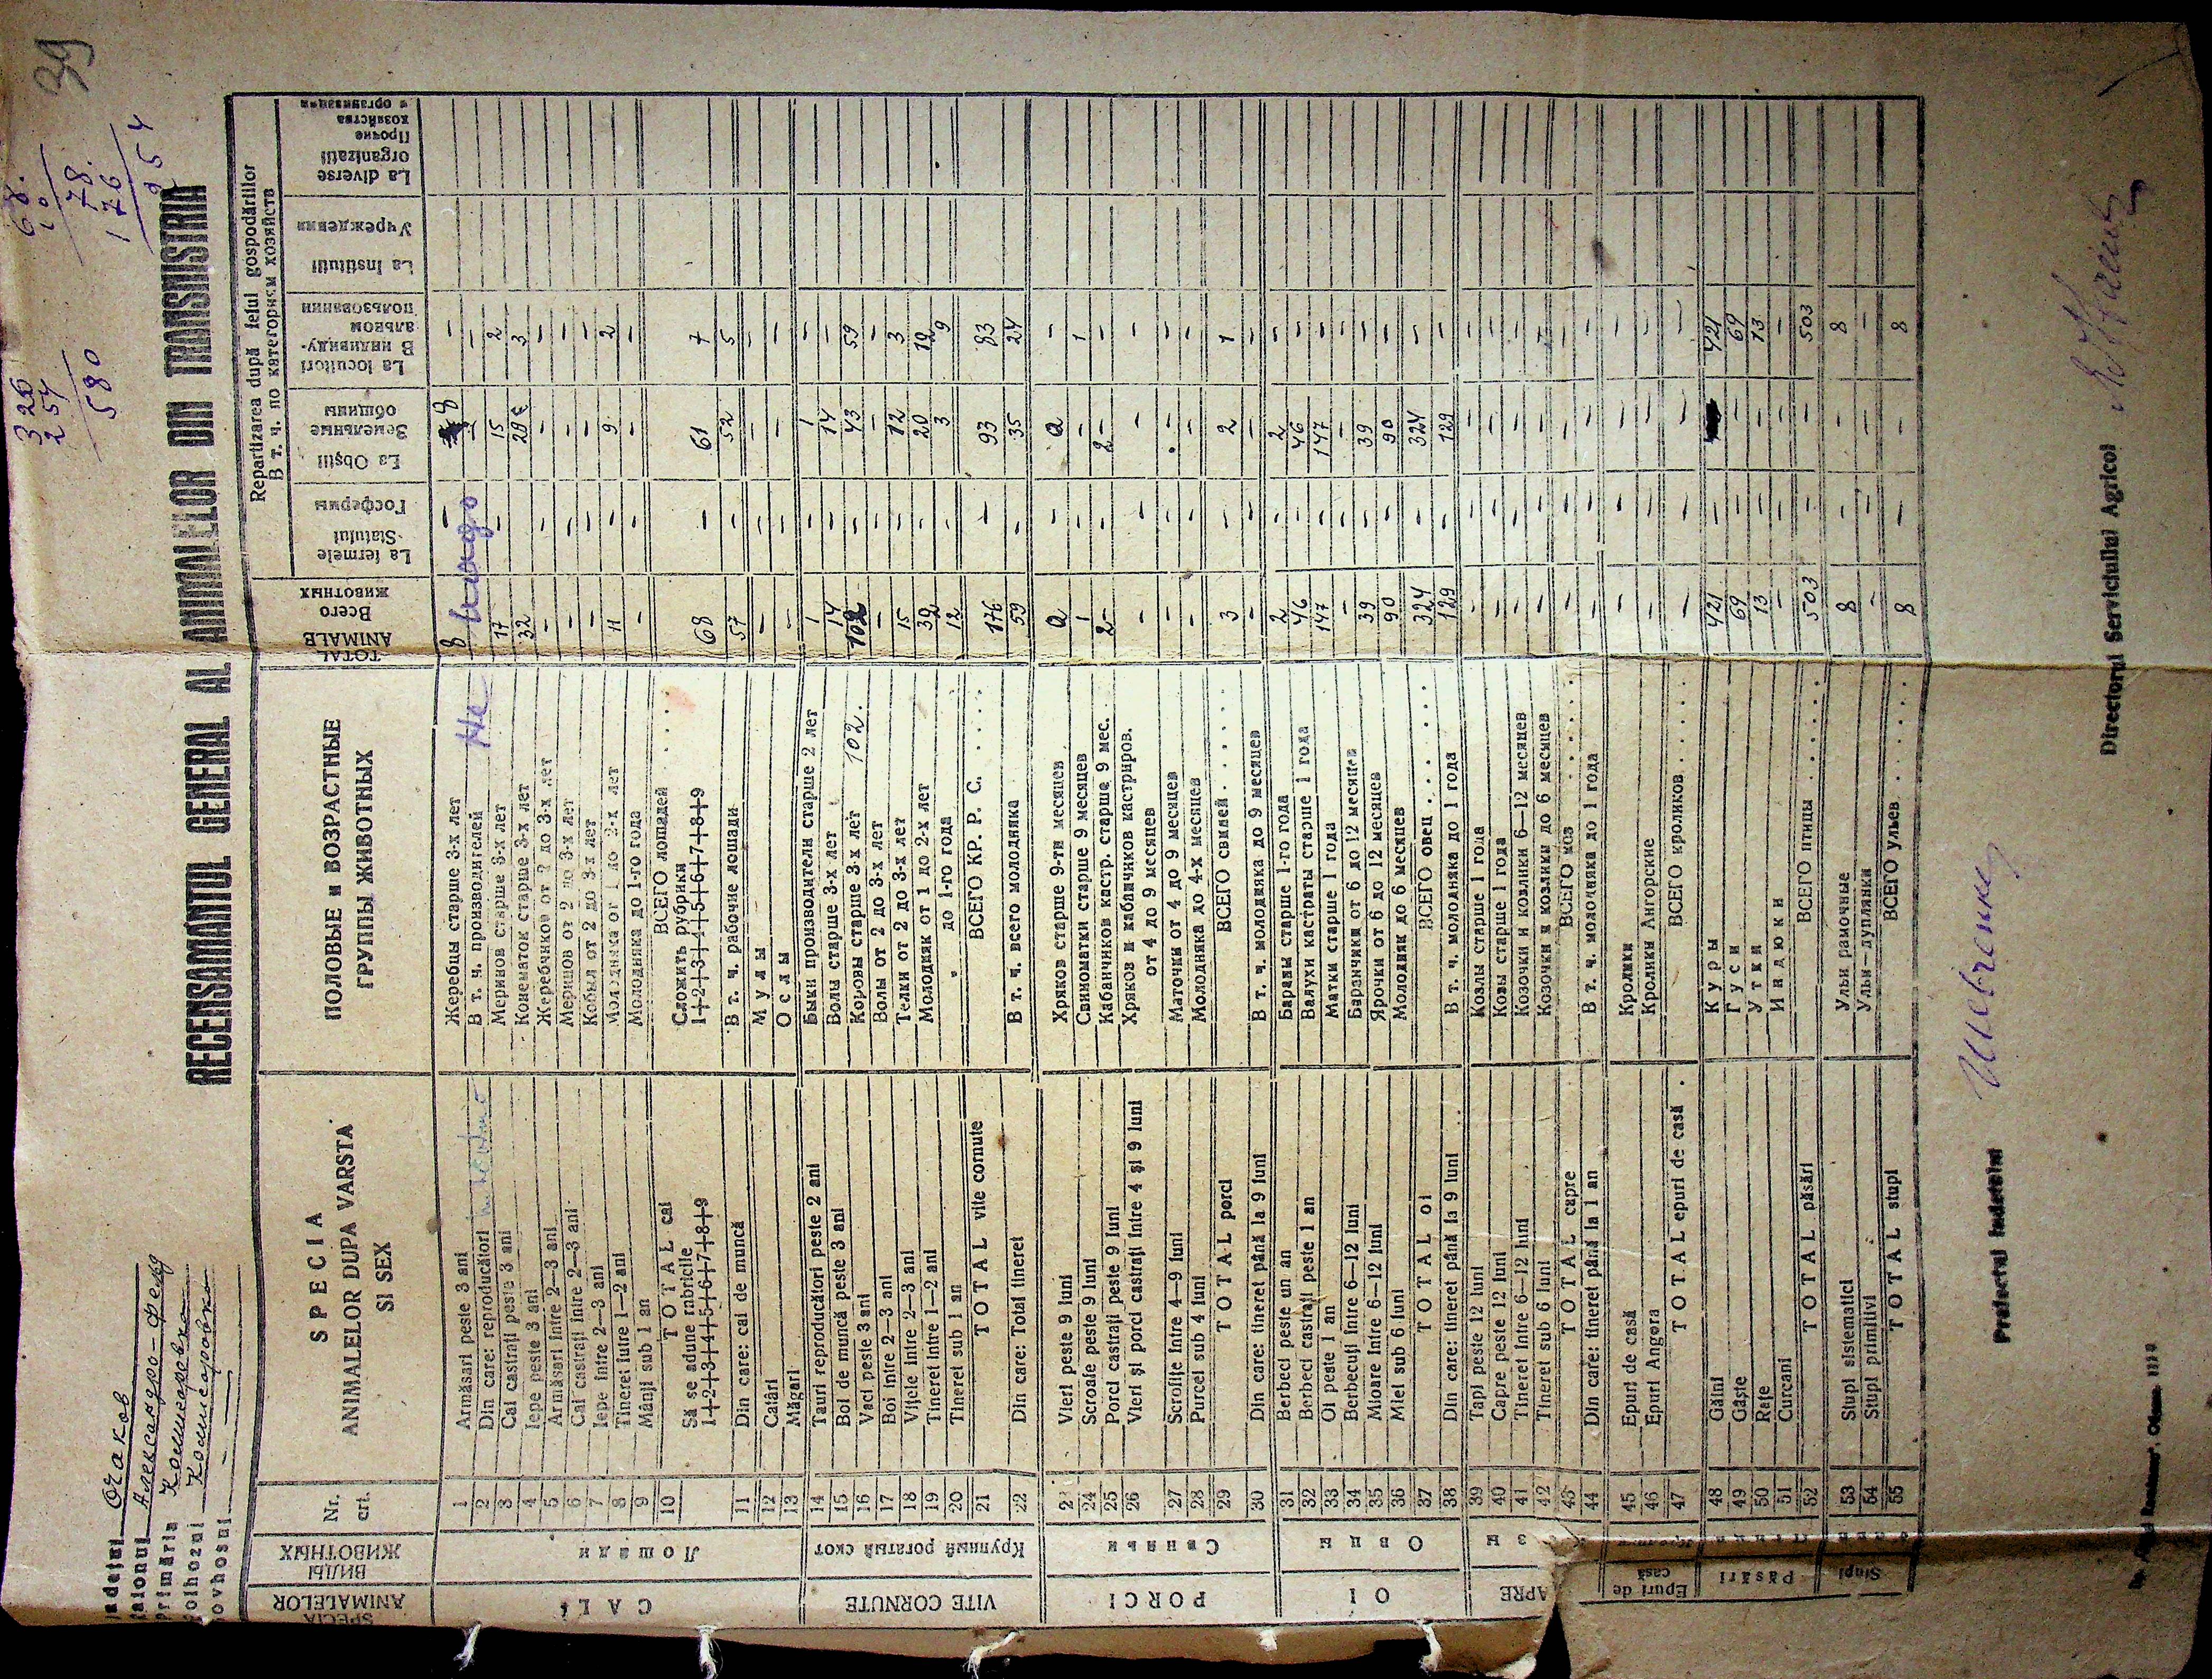 39
326
254
580
68.
10
78.
176
254
Judeţul Очаков
raionul Александро-фельд
primăria Комисаровка
colhozul Комисаровка
sovhosul — —
RECENSAMANTUL GENERAL AL ANIMALELOR DIN TRANSNISTRIA
SPECIA ANIMALELOR
ВИДЫ ЖИВОТНЫХ
Nr. crt.
SPECIA ANIMALELOR DUPA VARSTA SI SEX
ПОЛОВЫЕ и ВОЗРАСТНЫЕ ГРУППЫ ЖИВОТНЫХ
TOTAL ANIMALE Всего животных
Repartizarea după felul gospodăriilor
В т. ч. по категориям хозяйств
La fermele Statului Госфермы
La Obştii Земельные общины
La locuitori В индивидуальном пользовании
La Instituţii Учреждения
La diverse organizatii Прочие хозяйства и организации
CAI Лошади
1 Armăsari peste 3 ani Жеребцы старше 3-х лет 8 — 8 —
2 Din care: reproducători В т. ч. производителей Не — —
3 Cai castraţi peste 3 ani Меринов старше 3-х лет 17 — 15 2
4 Iepe peste 3 ani Конематок старше 3-х лет 32 29 3
5 Armăsari între 2—3 ani Жеребчиков от 2 до 3-х лет — — — —
6 Cai castraţi între 2—3 ani Меринов от 2 до 3-х лет — — — —
7 Iepe între 2—3 ani Кобыл от 2 до 3-х лет — — — —
8 Tineret între 1—2 ani Молодняка от 1 до 2-х лет 11 — 9 2
9 Mânji sub 1 an Молодняка до 1-го года — — — —
10 TOTAL cai ВСЕГО лошадей . . . .
Să se adune rubricile Сложить рубрики
1+2+3+4+5+6+7+8+9 1+2+3+4+5+6+7+8+9 68 — 61 7
11 Din care: cai de muncă В т. ч. рабочие лошади 57 — 52 5
12 Catâri Мулы — — — —
13 Măgari Ослы — — — —
VITE CORNUTE Крупный рогатый скот
14 Tauri reproducători peste 2 ani Быки производители старше 2 лет 1 — 1 —
15 Boi de muncă peste 3 ani Волы старше 3-х лет 14 — 14 —
16 Vaci peste 3 ani Коровы старше 3-х лет 102. 102 — 43 59
17 Boi între 2—3 ani Волы от 2 до 3-х лет — — — —
18 Viţele între 2—3 ani Телки от 2 до 3-х лет 15 — 12 3
19 Tineret între 1—2 ani Молодняк от 1 до 2-х лет 32 — 20 12
20 Tineret sub 1 an „ до 1-го года 12 — 3 9
21 TOTAL vite cornute ВСЕГО КР. Р. С. . . . . . 176 — 93 83
22 Din care: Total tineret В т. ч. всего молодняка 59 — 35 24
PORCI Свиньи
23 Vieri peste 9 luni Хряков старше 9-ти месяцев — —
24 Scroafe peste 9 luni Свиноматки старше 9 месяцев 1 — — 1
25 Porci castraţi peste 9 luni Кабанчиков кастр. старше 9 мес. 2 — 2 —
26 Vieri şi porci castraţi între 4 şi 9 luni Хряков и кабанчиков кастриров. от 4 до 9 месяцев — — — —
27 Scrofiţe între 4—9 luni Маточки от 4 до 9 месяцев — — — —
28 Purcei sub 4 luni Молодняка до 4-х месяцев — — — —
29 TOTAL porci ВСЕГО свиней . . . . . . 3 — 2 1
30 Din care: tineret până la 9 luni В т. ч. молодняка до 9 месяцев — — — —
OI Овцы
31 Berbeci peste un an Бараны старше 1-го года 2 — 2 —
32 Berbeci castraţi peste 1 an Валухи кастраты старше 1 года 46 — 46 —
33 Oi peste 1 an Матки старше 1 года 147 — 147 —
34 Berbecuţi între 6—12 luni Баранчики от 6 до 12 месяцев — — — —
35 Mioare între 6—12 luni Ярочки от 6 до 12 месяцев 39 — 39 —
36 Miei sub 6 luni Молодняк до 6 месяцев 90 — 90 —
37 TOTAL oi ВСЕГО овец . . . . . . 324 — 324 —
38 Din care: tineret până la 9 luni В т. ч. молодняка до 1 года 129 — 129 —
CAPRE Козы
39 Tapi peste 12 luni Козлы старше 1 года — — — —
40 Capre peste 12 luni Козы старше 1 года — — — —
41 Tineret între 6—12 luni Козочки и козлики 6—12 месяцев — — — —
42 Tineret sub 6 luni Козочки и козлики до 6 месяцев — — — —
43 TOTAL capre ВСЕГО коз . . . . . . — — — —
44 Din care: tineret până la 1 an В т. ч. молодняка до 1 года — — — —
Epuri de casă Кролики
45 Epuri de casă Кролики — — — —
46 Epuri Angora Кролики Ангорские — — — —
47 TOTAL epuri de casă . ВСЕГО кроликов . . . . . — — — —
Păsări Птицы
48 Găini Куры 421 — 421
49 Gâşte Гуси 69 — — 69
50 Raţe Утки 13 — — 13
51 Curcani Индюки — — — —
52 TOTAL păsări ВСЕГО птицы . . . . . . 503 — — 503
Stupi
53 Stupi sistematici Ульи рамочные 8 — — 8
54 Stupi primitivi Ульи—дуплянки — — — —
55 TOTAL stupi ВСЕГО ульев . . . . . . 8 — — 8
Prefectul Judetului Шевченко
Directorul Serviciului Agricol